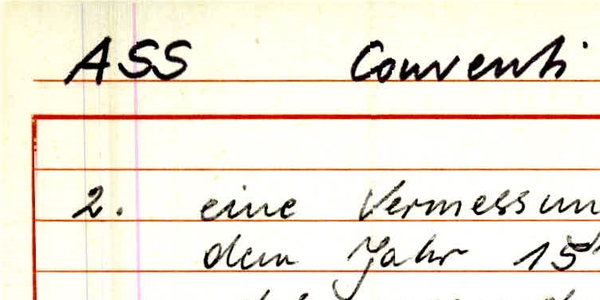 ASS Conventi
2. eine Vermessun
dem Jahr 15